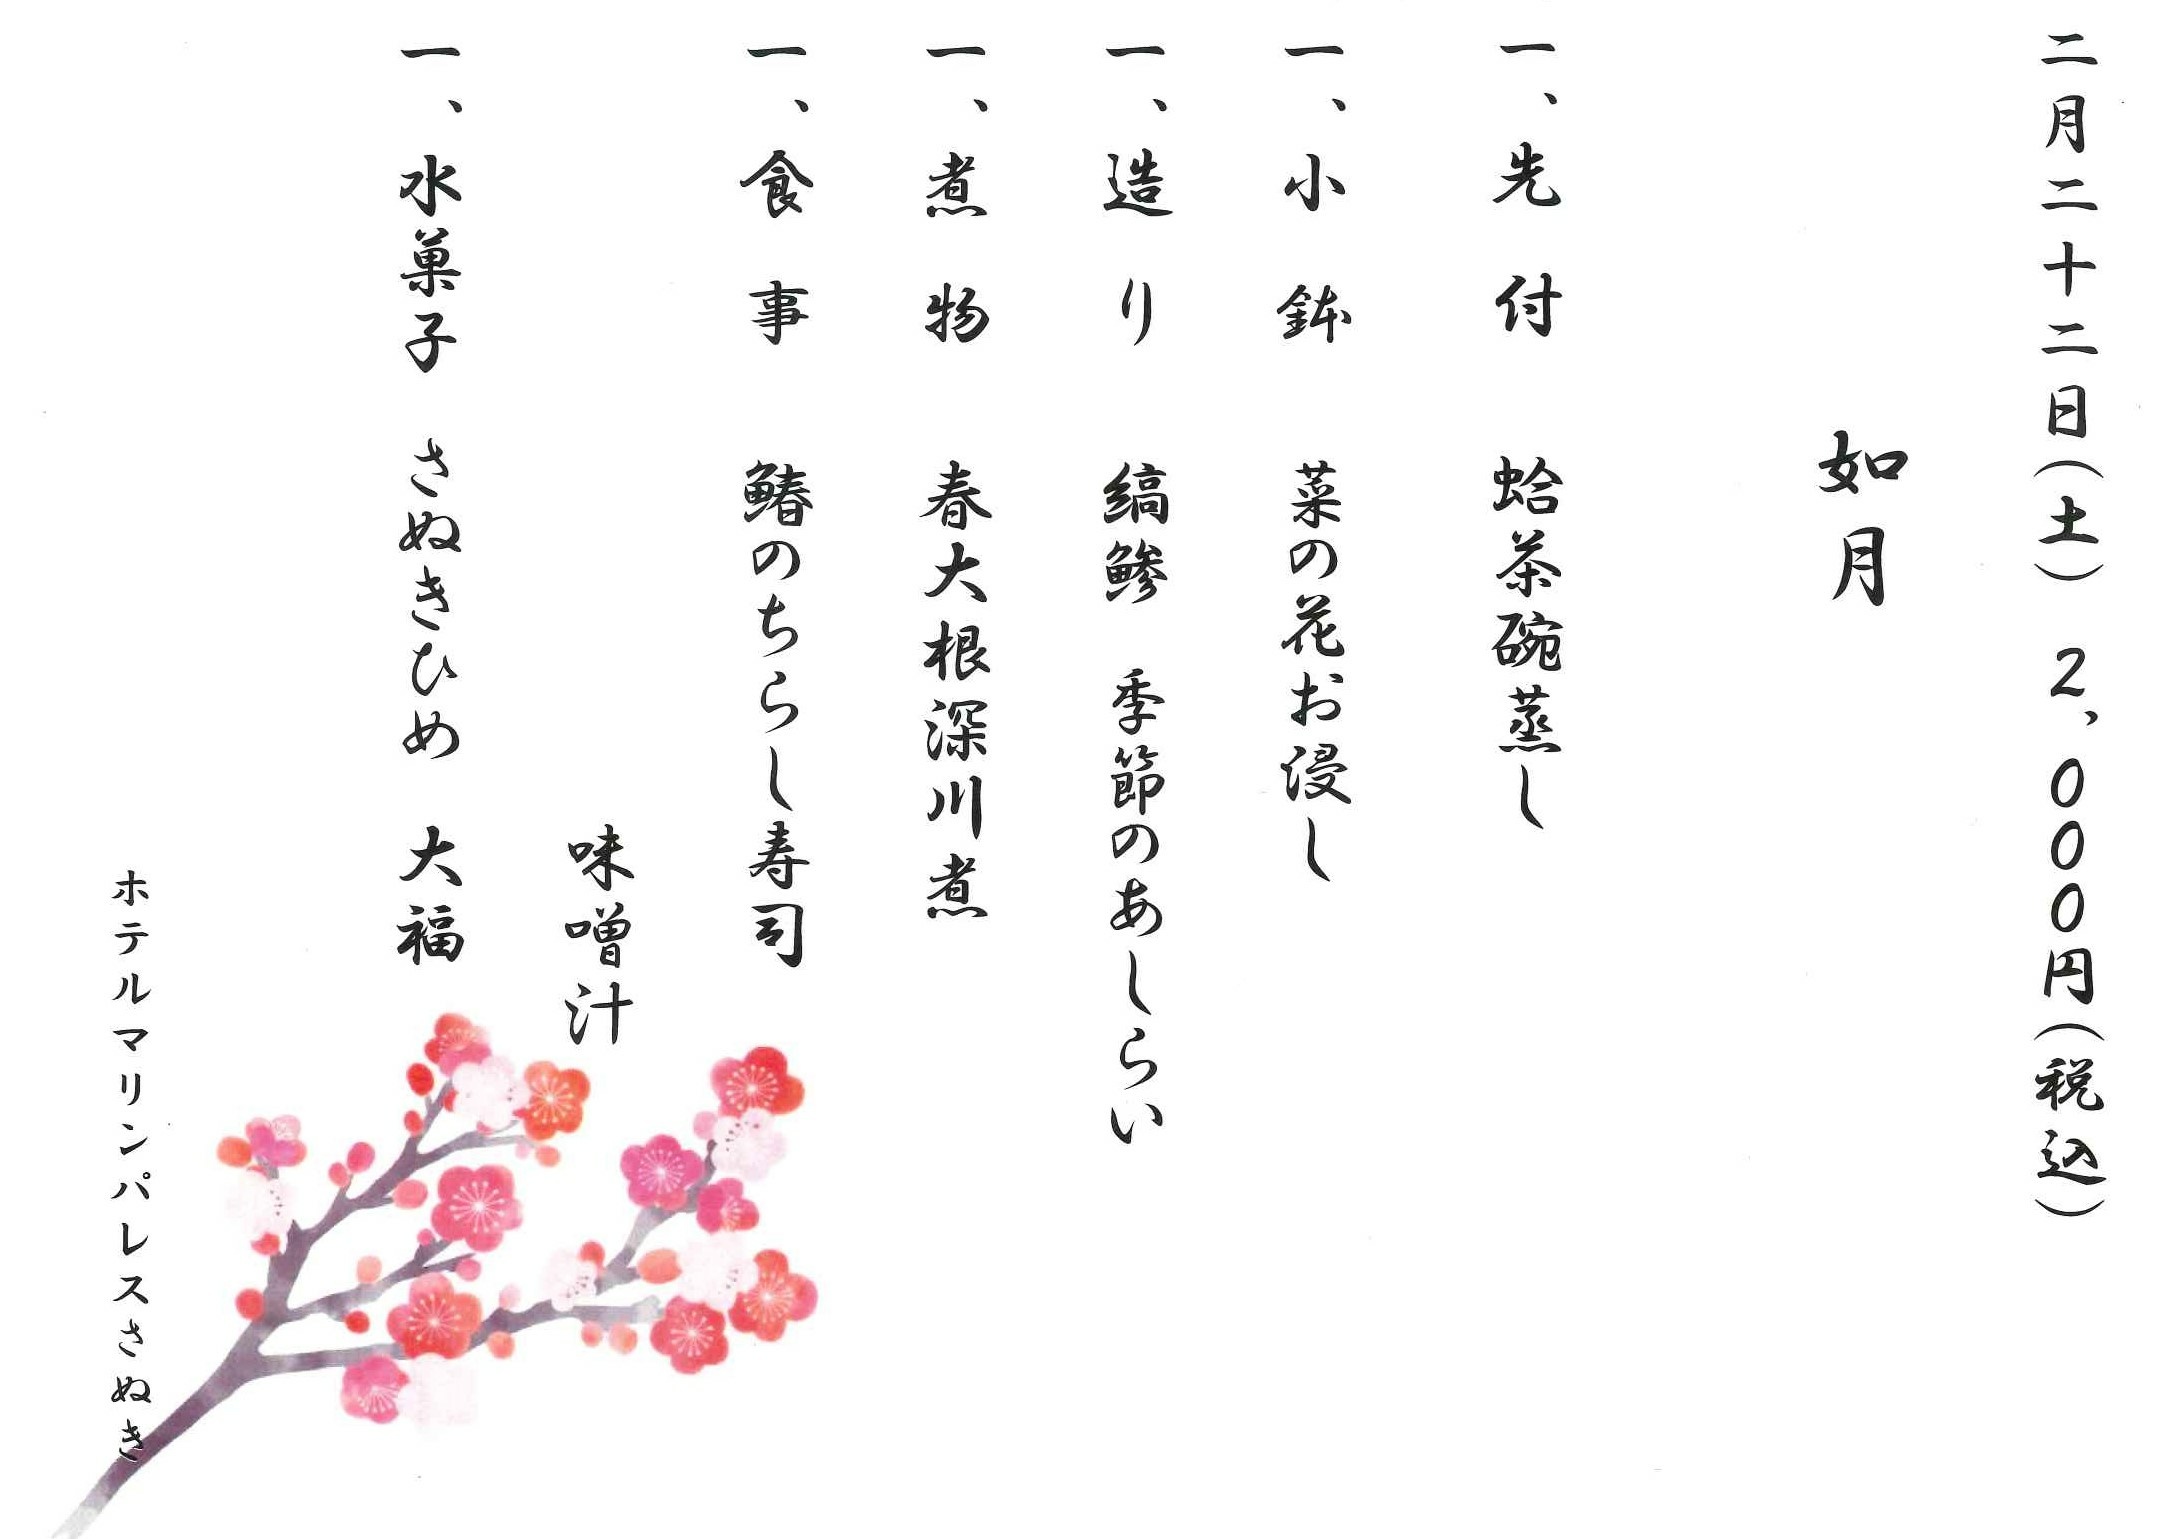 二月二十二日(土) 2,000円(税込)
如月
一、先付 蛤茶碗蒸し
一、小鉢 菜の花お浸し
一、造り 縞鯵 季節のあしらい
一、煮物 春大根深川煮
一、食事 鰆のちらし寿司
味噌汁
一、水菓子 さぬきひめ 大福
ホテルマリンパレスさぬき